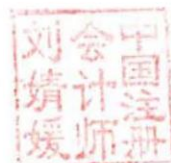 中国注册
会计师
刘婧媛